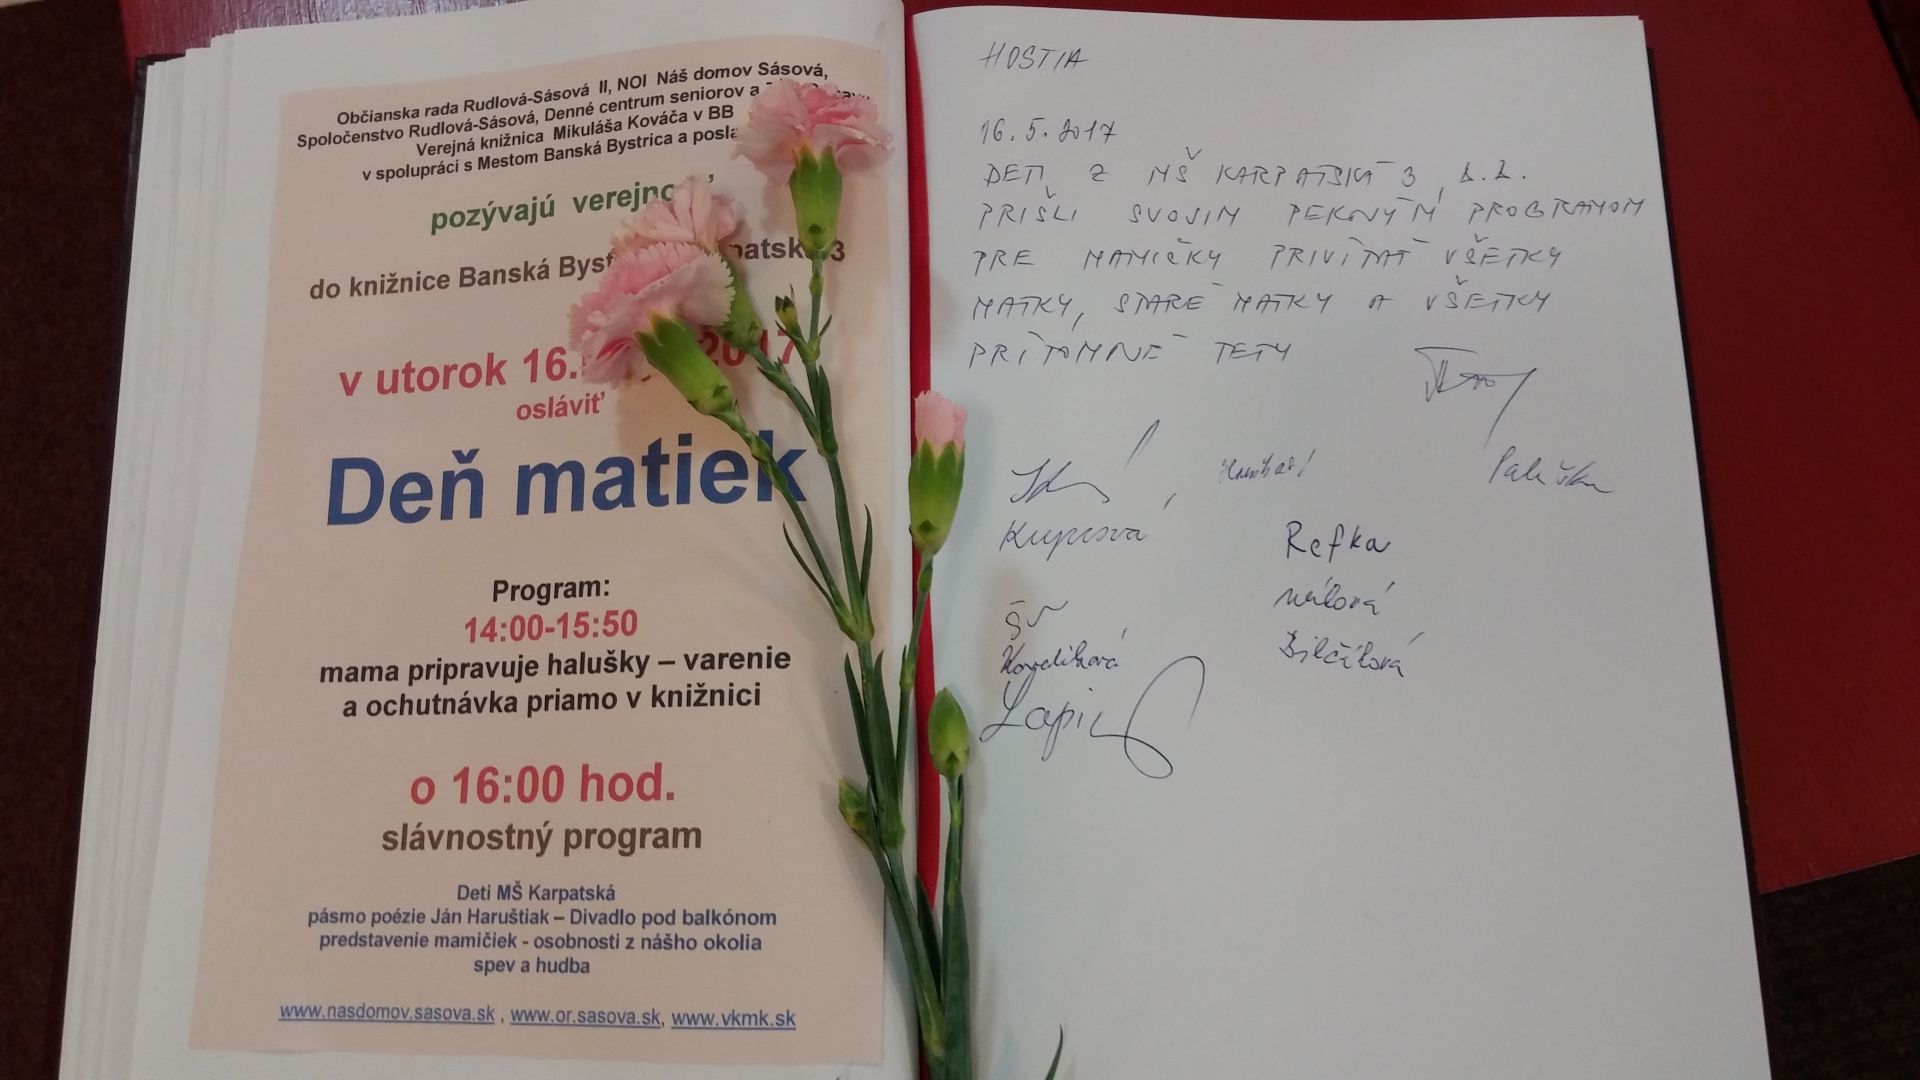 Občianska rada Rudlová-Sásová II, NOI Náš domov Sásová,
Spoločenstvo Rudlová-Sásová, Denné centrum seniorov a
Verejná knižnica Mikuláša Kováča v BB
v spolupráci s Mestom Banská Bystrica a
pozývajú
do knižnice Banská 3
v utorok 16. 2017
osláviť
Deň matiek
Program:
14:00-15:50
mama pripravuje halušky – varenie
a ochutnávka priamo v knižnici
o 16:00 hod.
slávnostný program
Deti MŠ Karpatská
pásmo poézie Ján Haruštiak – Divadlo pod balkónom
predstavenie mamičiek - osobnosti z nášho okolia
spev a hudba
www.nasdomov.sasova.sk , www.or.sasova.sk, www.vkmk.sk
HOSTIA
16.5.2017
DETI Z MŠ KARPATSKÁ 3,
PRIŠLI SVOJIM PEKNÝM PROGRAMOM
PRE MAMIČKY PRIVÍTAŤ VŠETKY
MATKY, STARÉ MATKY A VŠETKY
PRÍTOMNÉ TETY
Refka